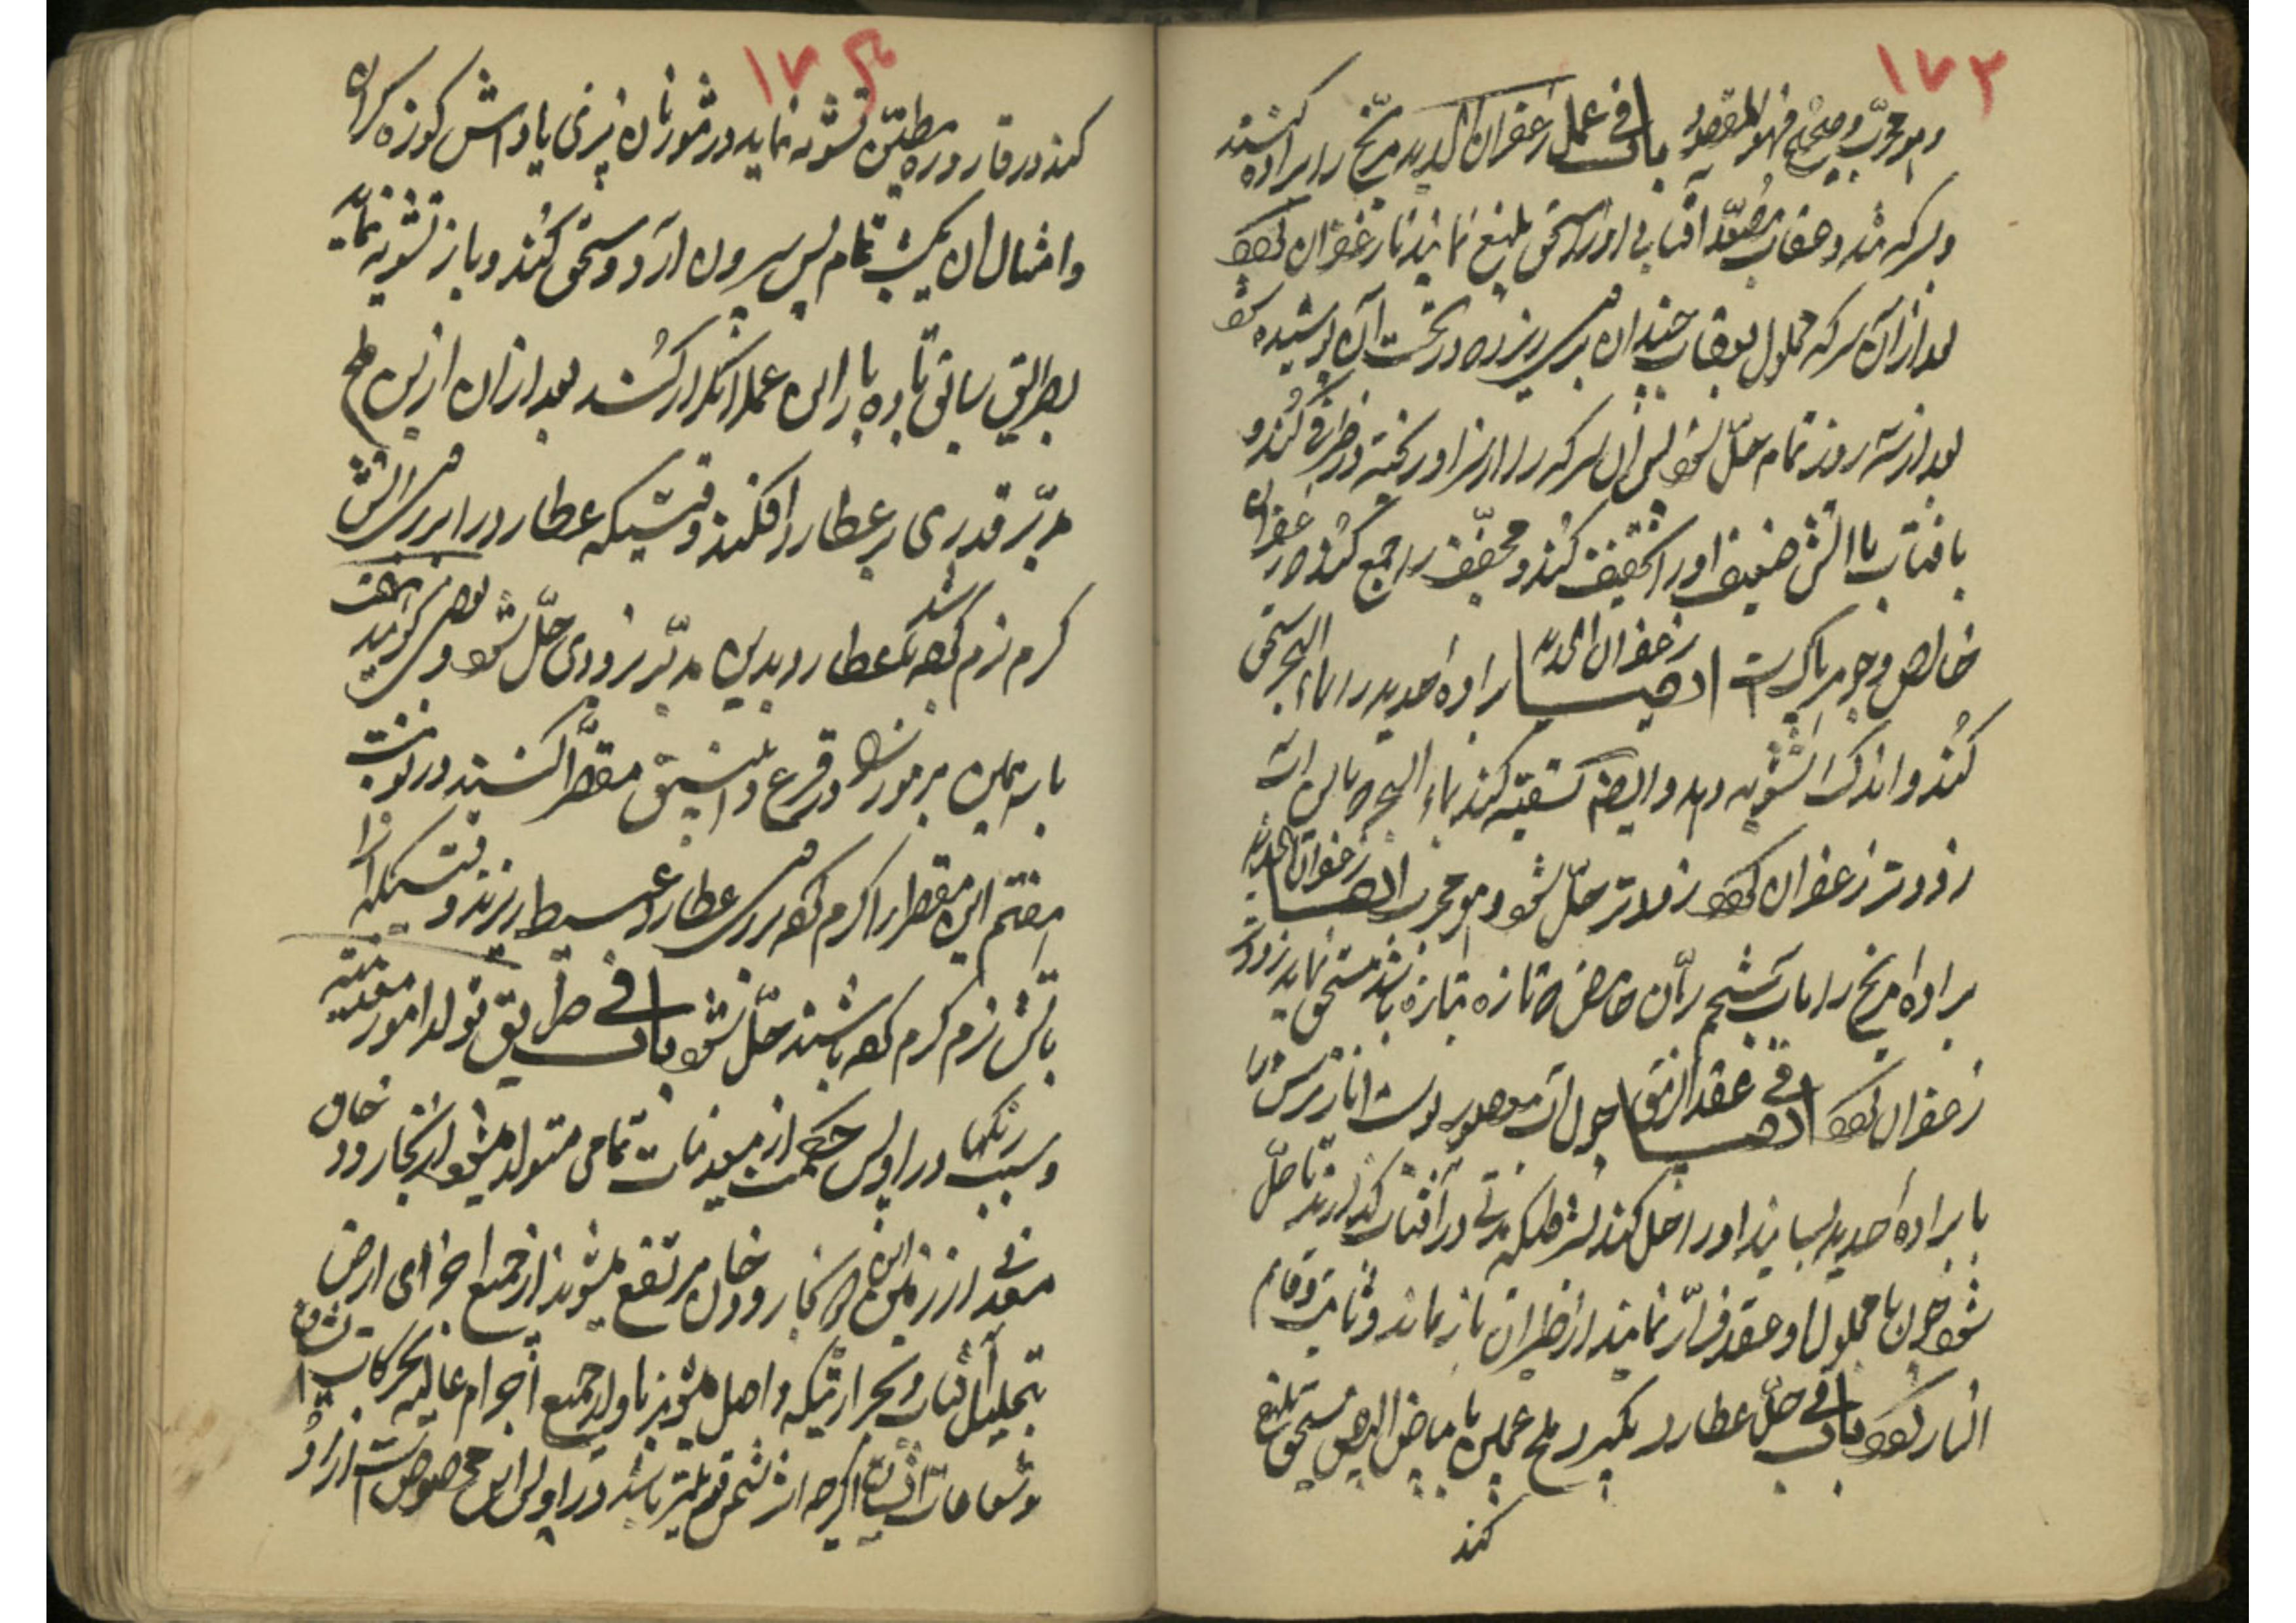 ۱۷۳
و هو مجرّب و صحیح فهو المقصود باب فی عمل زعفران الحدید مرّیخ را براده کنند
و سرکه و عقاب مصعّد آفتابی او را سحق بلیغ نمایند تا زعفران شود
بعد از آن سرکه محلول بعقاب چندان بر سر ریزد که در تحت آن پوشیده شود
بعد از سه روز تمام حلّ شود پس آن سرکه را از سر او ریخته در ظرفی کنند و
بافتاب یا آتش ضعیف او را تخفیف کنند و مجفّف را جمع کنند که زعفران
خالص و جوهر پاک است ایضا زعفران الحدید براده حدید را بماء البحر سحق
کنند و اندک تشویه دهد و ایضا تسقیه کنند بماء البحر که باین
زودتر زعفران شود زودتر حلّ شود و هو مجرب ایضا زعفران الحدید
براده مریخ را بآب شحم رمّان حامض که تازه بتازه باشد سحق نماید زودتر
زعفران شود ایضا فی عقد الزیبق چون آب معصور پوست انار ترش را
با براده حدید بسایند او را حل کند بشرطیکه مدتی در آفتاب گذارند تا حلّ
شود چون با محلول او عقد فرّار نمایند از طیران باز ماند و ثابت و قائم
النار شود باب فی حلّ عطارد بگیرد ملح عملی با بیاض البیض سحق بلیغ
کند
۱۷۴
کند در قاروره مطیّن تشویه نماید در تنور نان پزی یا در آتش کوزه گران
و امثال آن یکشب تمام پس بیرون آرد و سحق کنند و باز تشویه نماید
بطریق سابق تا ده بار این عمل را تکرار کنند بعد از آن ازین ملح
مدبّر قدری بر عطارد افکنند وقتیکه عطارد را بر سر آتش
گرم نرم کرده باشد که عطارد بدین مدبّر بزودی حلّ شود و بعضی گویند
با همین مزبور در قرع و انبیق مقطّر کنند در نوبت
هفتم این مقطر را گرم کرده بر سر عطارد عبیط ریزند وقتیکه او را
بآتش نرم گرم کرده باشند حلّ شود باب فی طریق تولد امور معدنیه
و سبب رنگها در اوایل حکمت از معدنیات تمامی متولد میشود از بخار و دخان
معدنی از زمین این بخار و دخان مرتفع میشوند از جمیع اجزای ارض
بتحلیل آفتاب و بحرارتیکه واصل میشوند باو از جمیع اجرام عالیه بحرکات
و شعاعات ایشان اگرچه اثر شمس قویتر باشد در اوایل این مخصوص است از